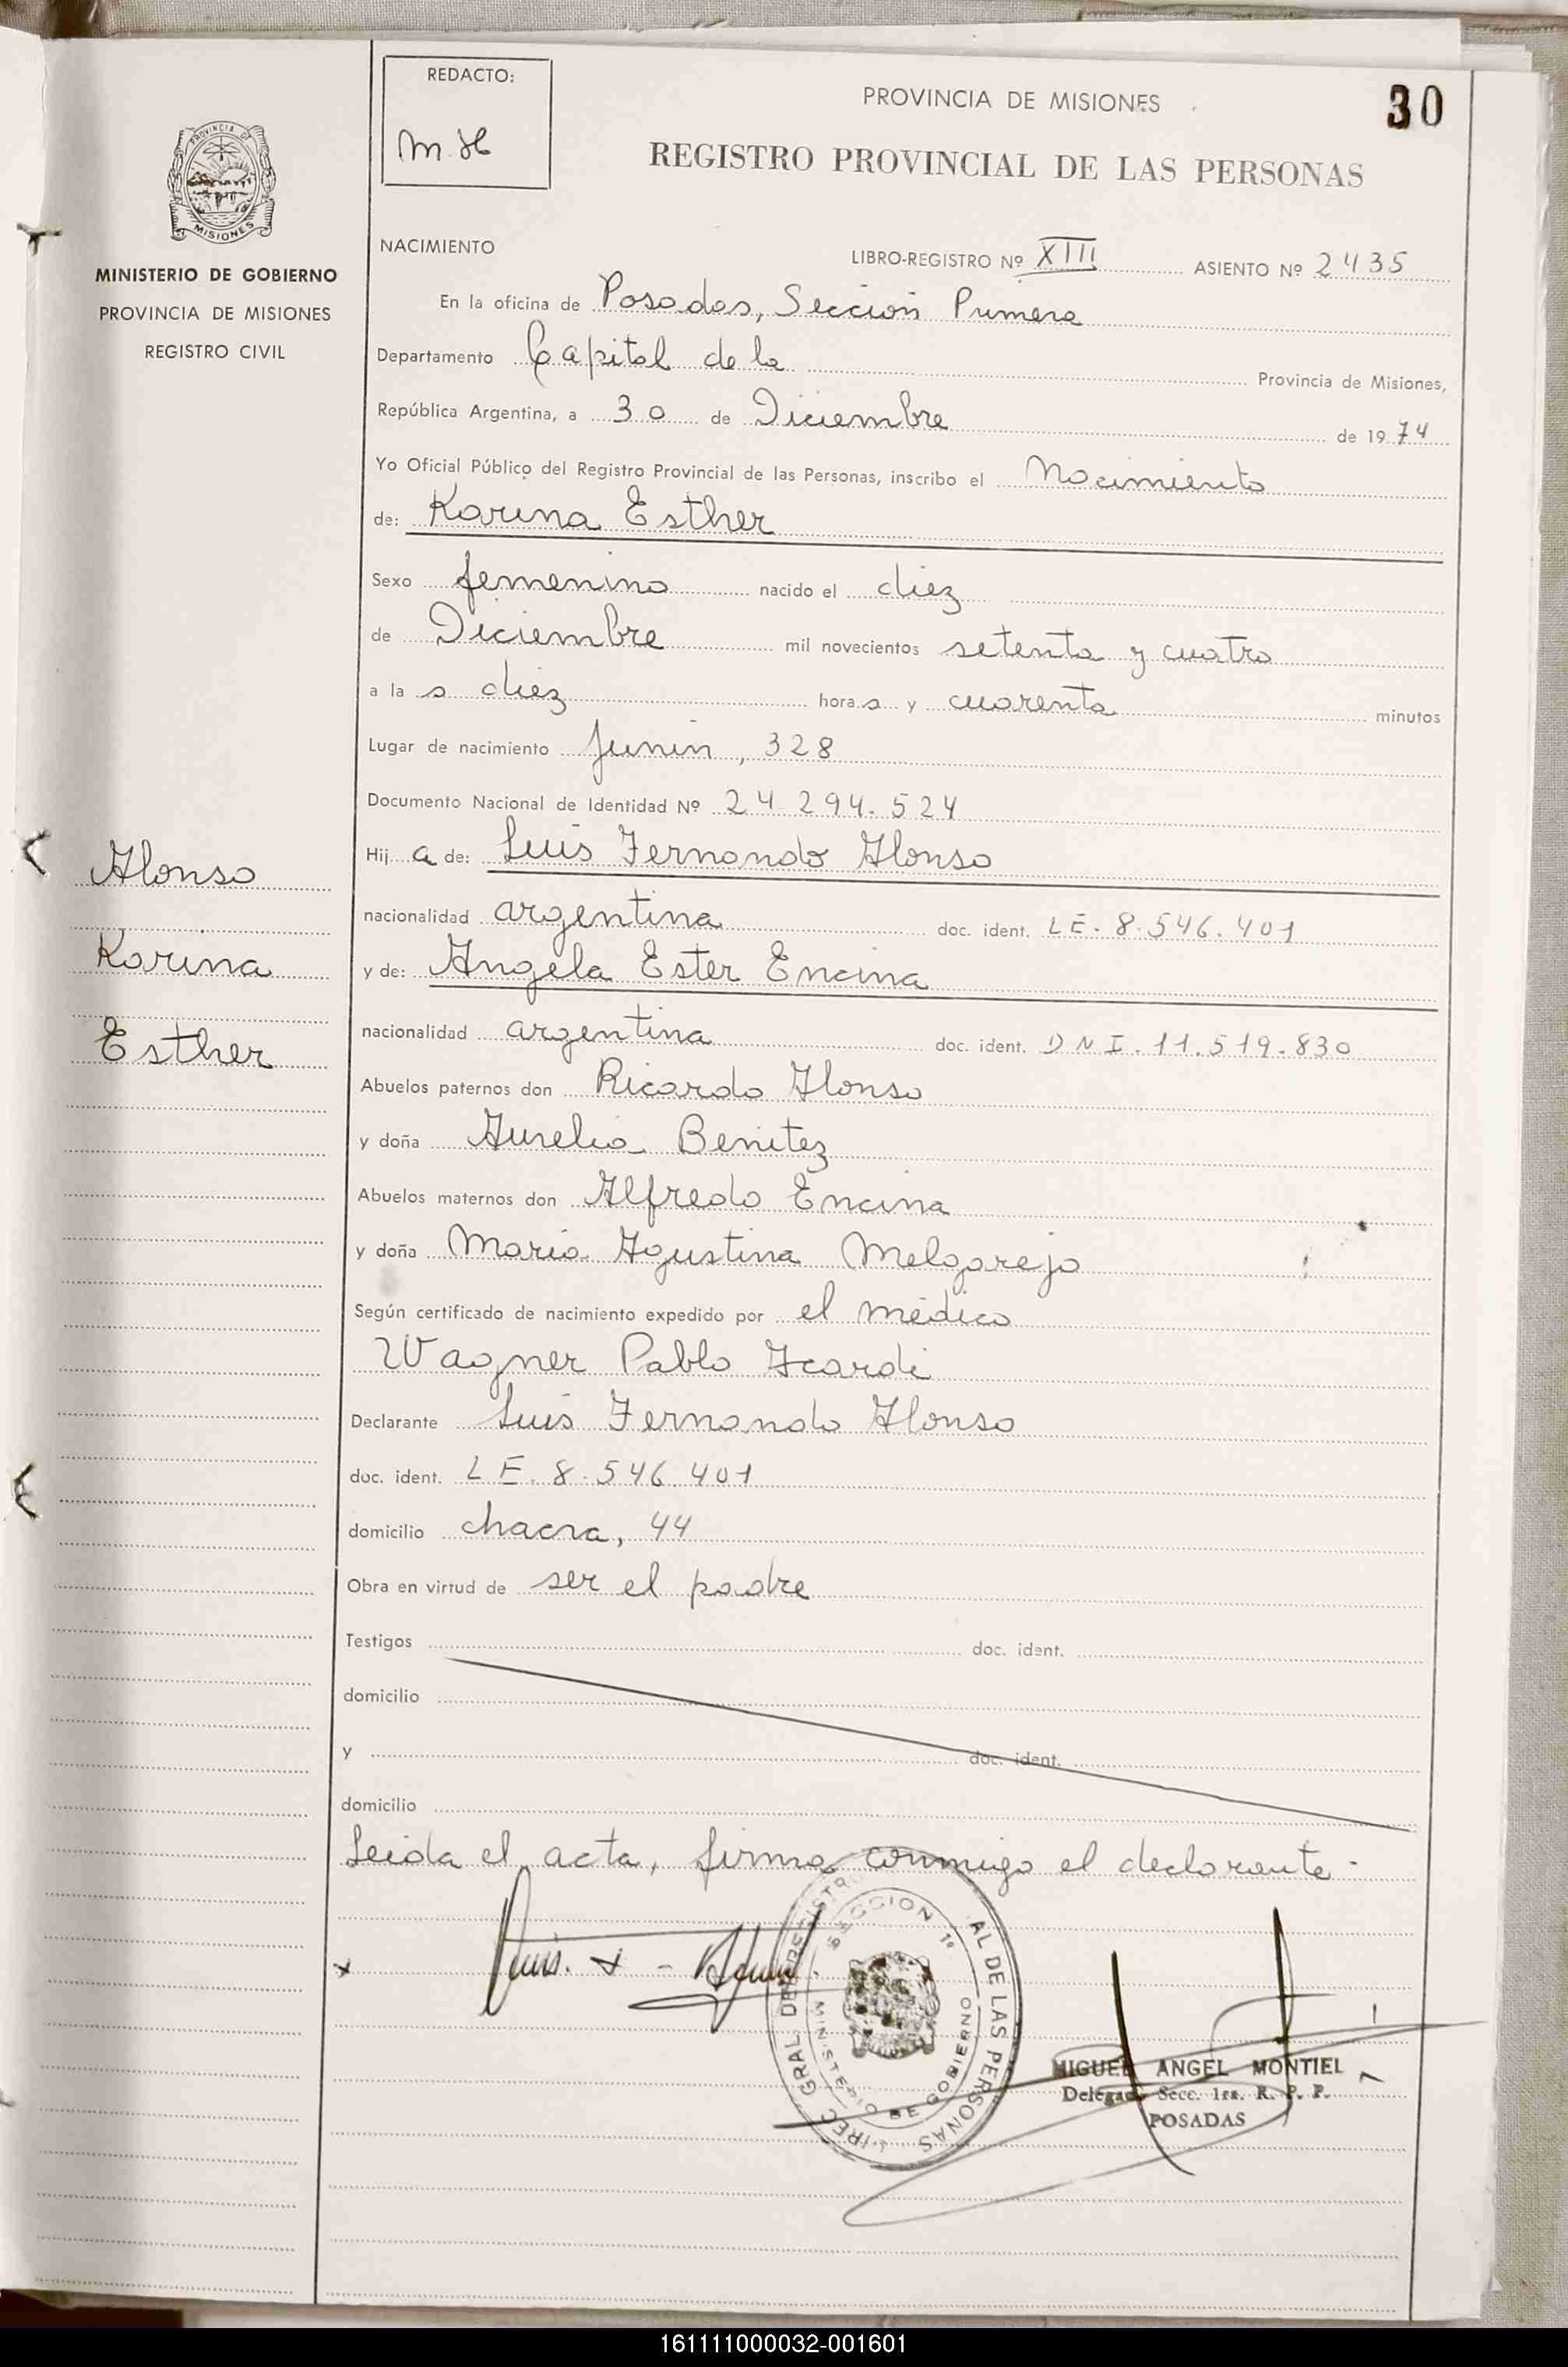 REDACTO:
M. H
PROVINCIA DE MISIONES
30
REGISTRO PROVINCIAL DE LAS PERSONAS
PROVINCIA DE
MISIONES
MINISTERIO DE GOBIERNO
PROVINCIA DE MISIONES
REGISTRO CIVIL
NACIMIENTO
LIBRO-REGISTRO Nº XIII ASIENTO Nº 2435
En la oficina de Posadas, Sección Primera
Departamento Capital de la Provincia de Misiones,
República Argentina, a 30 de Diciembre de 1974
Yo Oficial Público del Registro Provincial de las Personas, inscribo el Nacimiento
de: Karina Esther
Sexo femenino nacido el diez
de Diciembre mil novecientos setenta y cuatro
a la s diez hora s y cuarenta minutos
Lugar de nacimiento Junin, 328
Documento Nacional de Identidad Nº 24.294.524
Hij a de: Luis Fernando Alonso
nacionalidad argentina doc. ident. LE. 8.546.401
y de: Angela Ester Encina
nacionalidad argentina doc. ident. DNI. 11.519.830
Abuelos paternos don Ricardo Alonso
y doña Aurelia Benitez
Abuelos maternos don Alfredo Encina
y doña Maria Agustina Melgarejo
Según certificado de nacimiento expedido por el médico
Wagner Pablo Icardi
Declarante Luis Fernando Alonso
doc. ident. LE. 8.546.401
domicilio chacra, 44
Obra en virtud de ser el padre
Testigos doc. ident.
domicilio
y doc. ident.
domicilio
Leida el acta, firma conmigo el declarante.-
Alonso
Karina
Esther
SECCION 1ª
MINISTERIO DE GOBIERNO
MIGUEL ANGEL MONTIEL
Delegado Secc. 1ra. R. P. P.
POSADAS
161111000032-001601